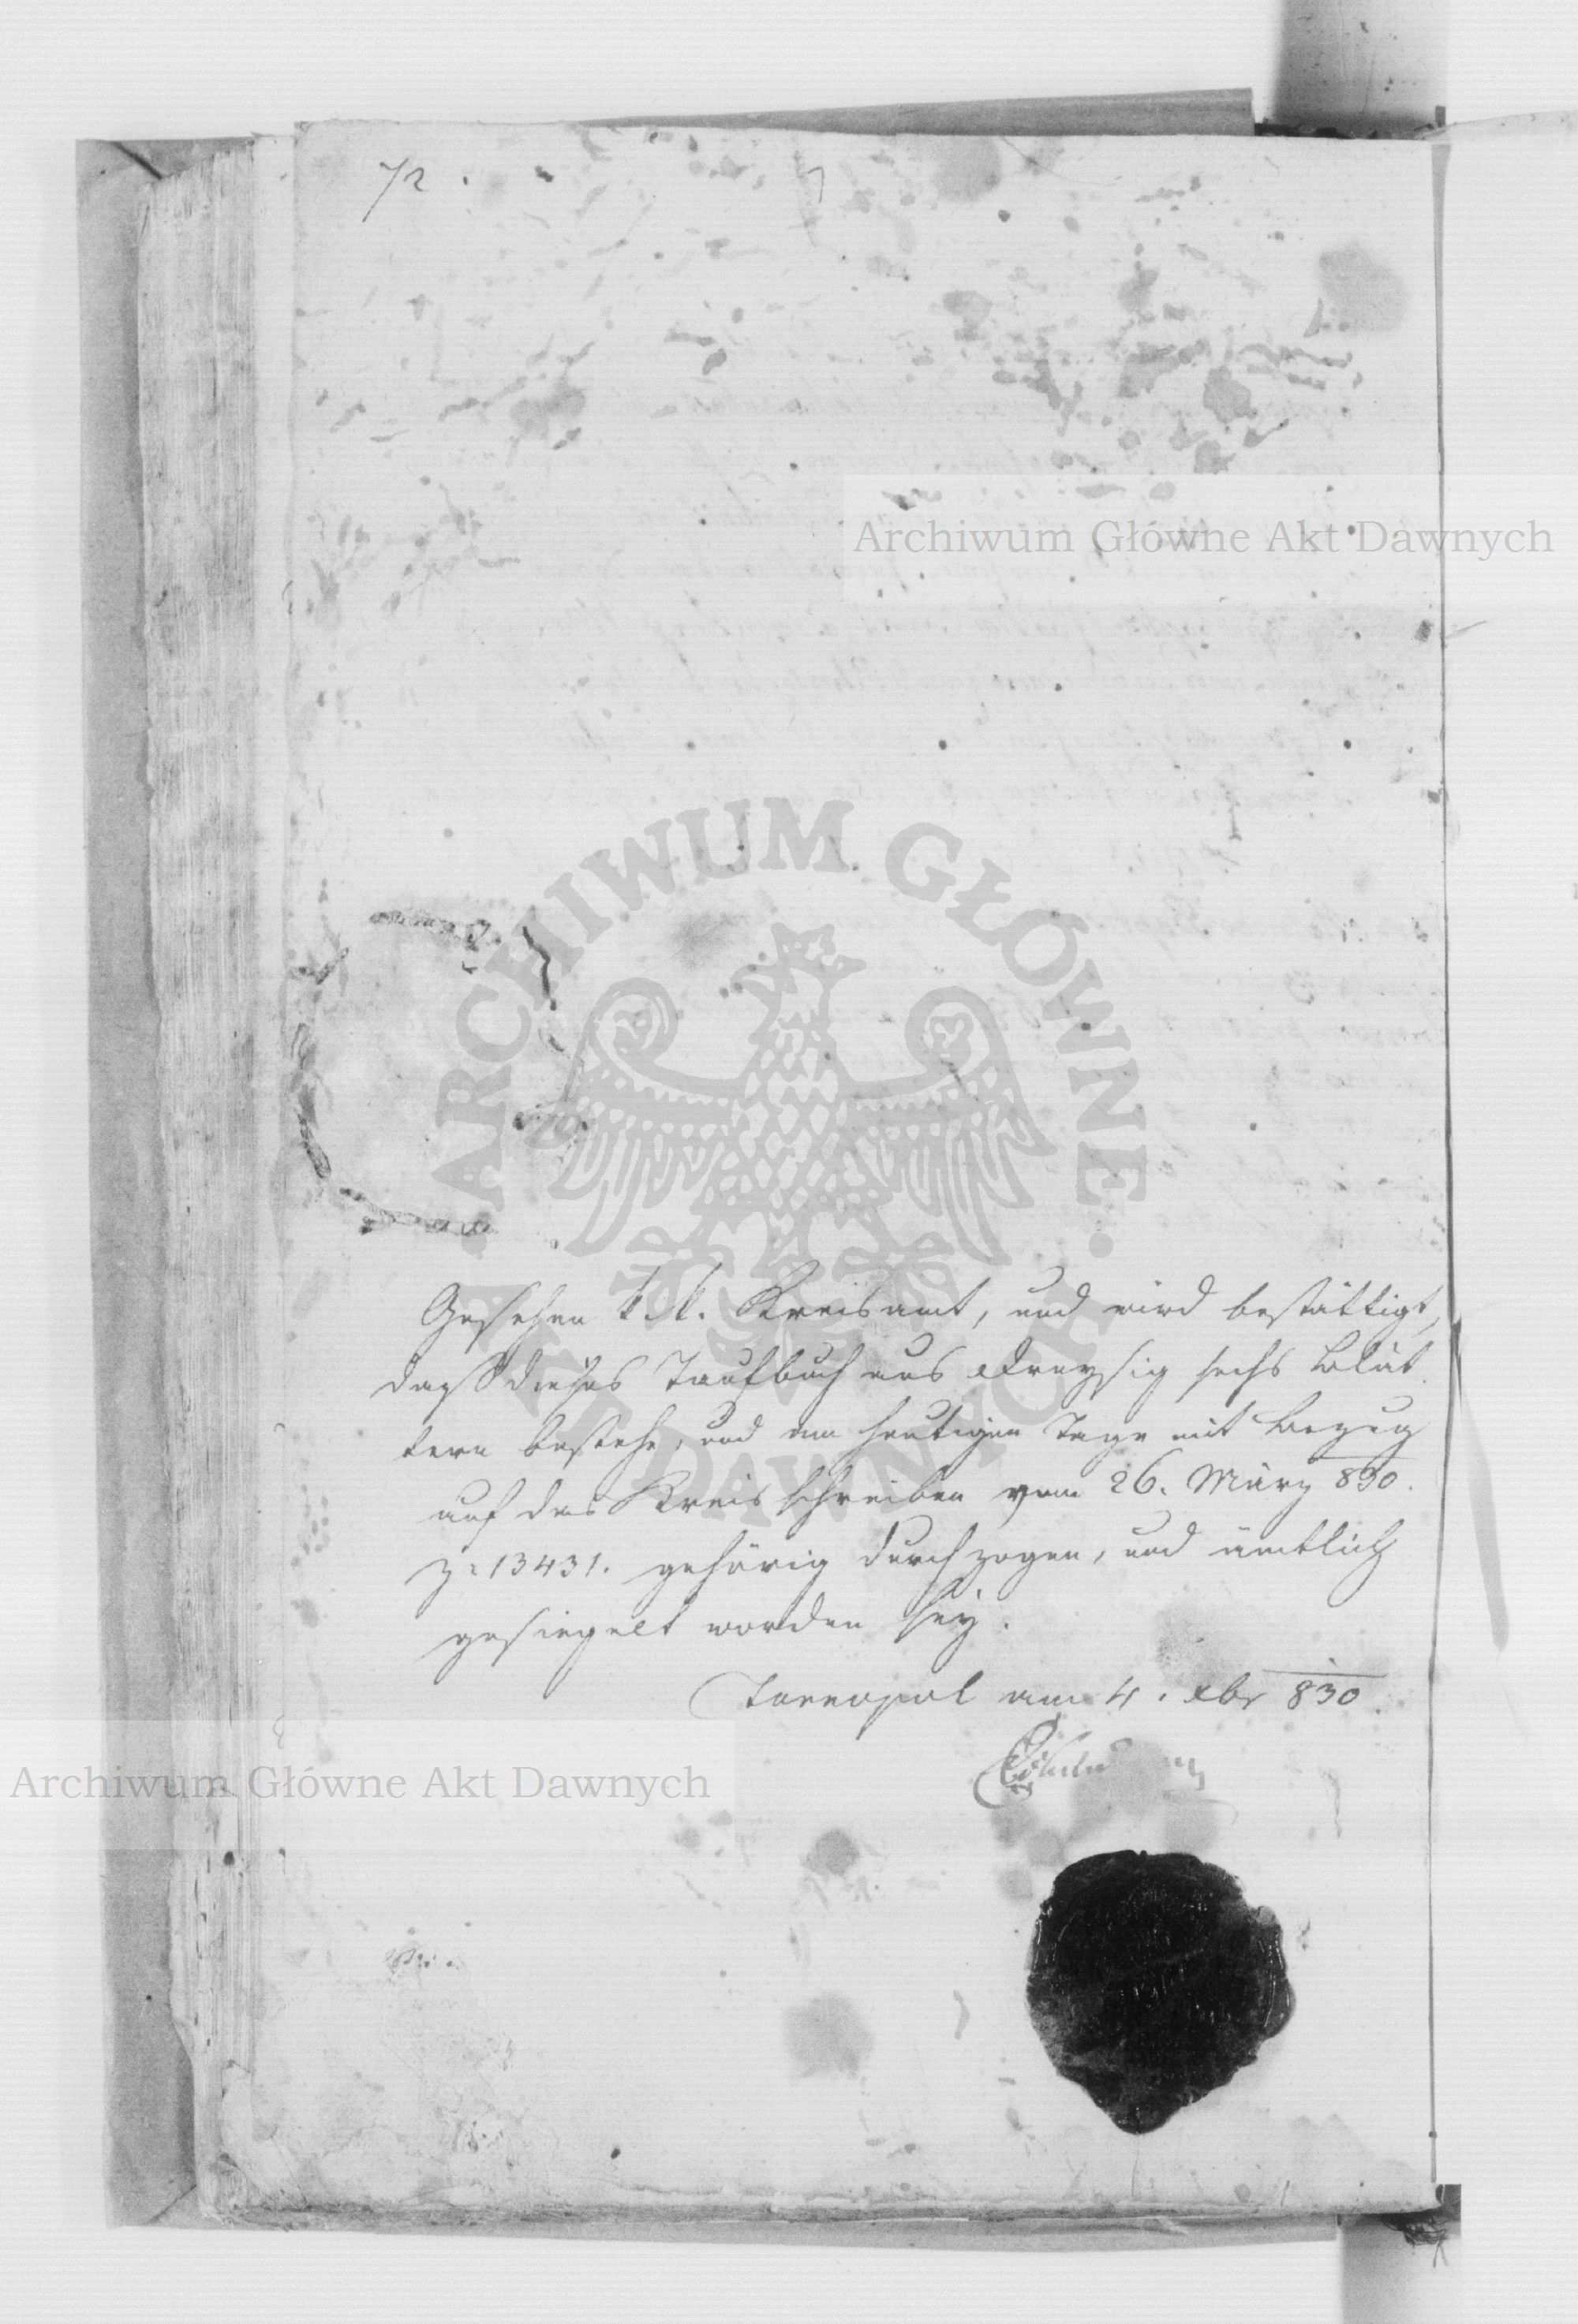 72.
Archiwum Główne Akt Dawnych
ARCHIWUM GŁÓWNE AKT DAWNYCH
Gesehen k. k. Kreisamt, und wird bestättigt,
daß dieses Taufbuch aus Dreysig sechs Blät
tern bestehe, und am heutigen Tage mit Bezug
auf das Kreisschreiben vom 26. März 830.
Z: 13431. gehörig durchzogen, und ämtlich
gesiegelt worden sey.
Tarnopol am 4. xbr 830
Archiwum Główne Akt Dawnych